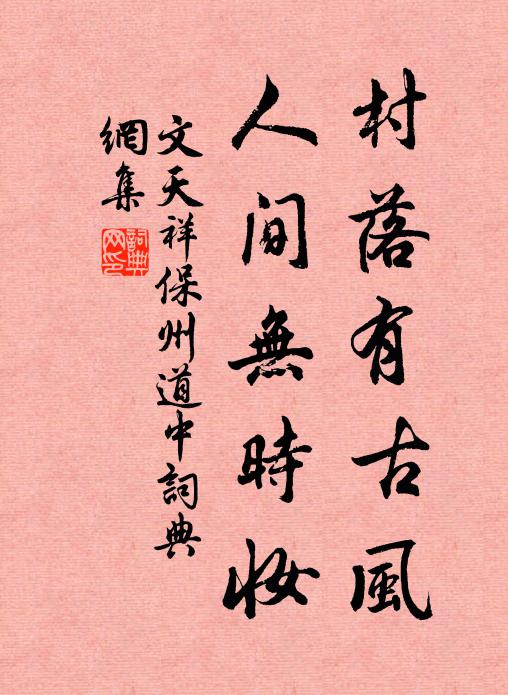 村落有古風
人間無時妝
文天祥保州道中詞典
網集
詞典网印